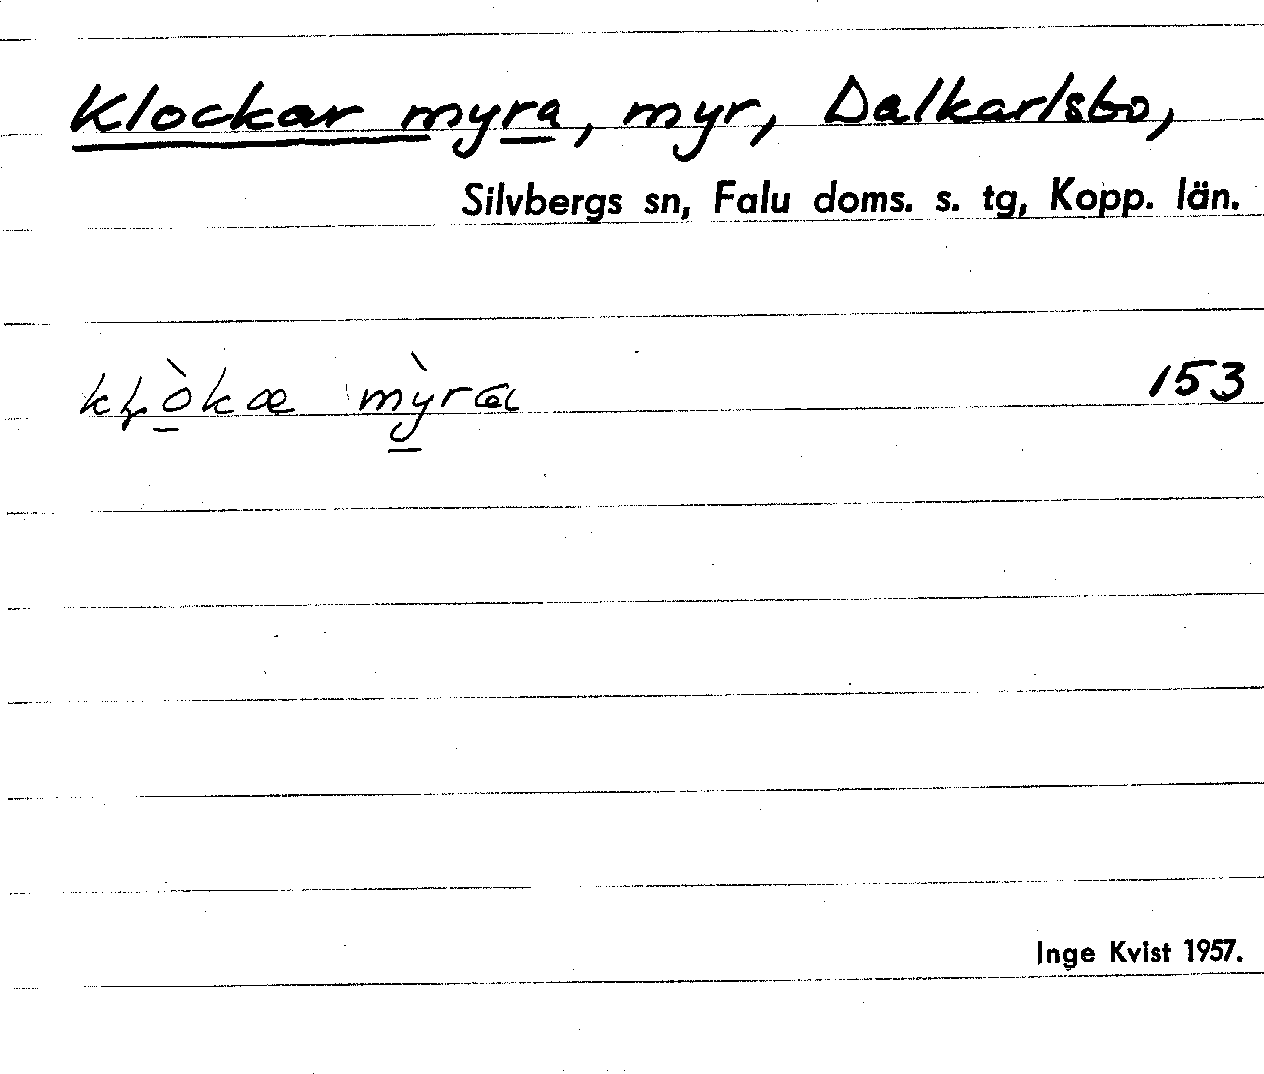 Klockar myra, myr, Dalkarlsbo,
Silvbergs sn, Falu doms. s. tg, Kopp. län.
kɽò̠kæ mỳ̠ra 153
Inge Kvist 1957.